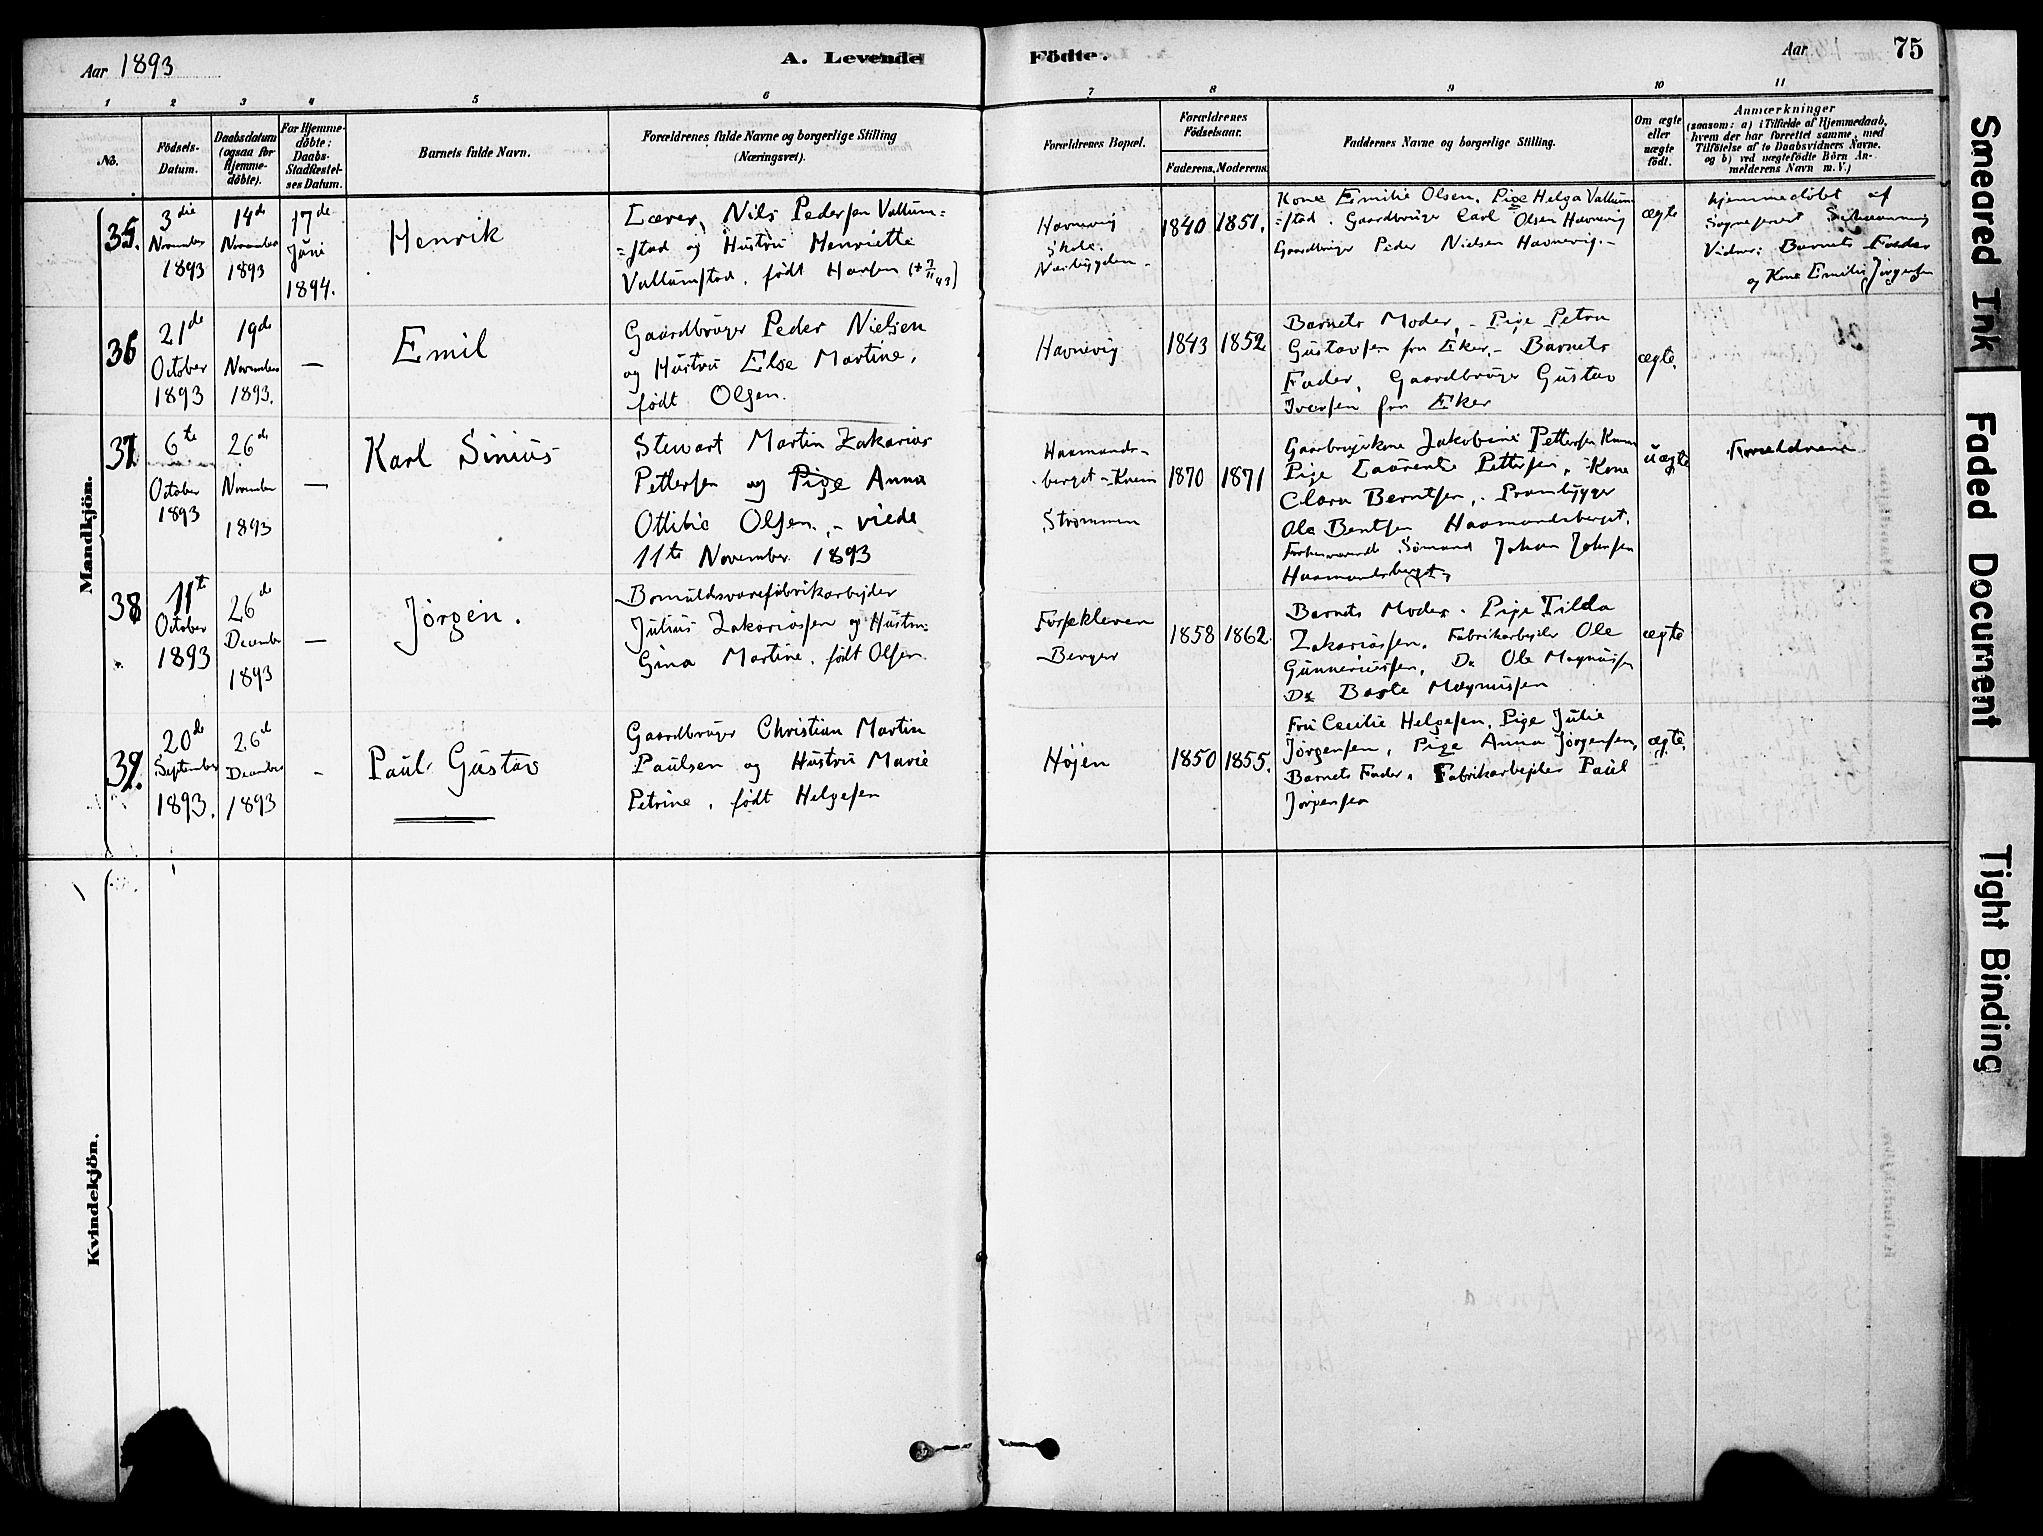 Aar 1893
A. Levende Födte.
Aar 75
1 2 3 4 5 6 7 8 9 10 11
No.
Födsels-
Datum.
Daabsdatum
(ogsaa for
Hjemme-
döbte).
For Hjemme-
döbte:
Daabs-
Stadfæstel-
ses Datum.
Barnets fulde Navn.
Forældrenes fulde Navne og borgerlige Stilling
(Næringsvei).
Forældrenes Bopæl.
Forældrenes
Födselsaar.
Faderens. Moderens.
Faddernes Navne og borgerlige Stilling.
Om ægte
eller
uægte
födt.
Anmærkninger
(saasom: a) i Tilfælde af Hjemmedaab,
hvem der har forrettet samme, med
Tilföielse af to Daabsvidners Navne,
og b) ved uægtefödte Börn An-
melderens Navn m. V.)
Mandkjön.
35.
3die
November
1893
14de
November
1893
17de
Juni
1894.
Henrik
Lærer, Nils Pedersen Vallum=
=stad og Hustru Henriette
Vallumstad, født Hansen
Havnevig
Skole.
1840
1851.
Kone Emilie Olsen. Pige Helga Vallum
=stad. Gaardbruger Carl Olsen Havnevig
Gaardbruger Peder Nielsen Havnevig.-
ægte
Hjemmedøbt af
Sognepræst
Vidner: Barnets Fader
og Kone Emilie Jørgensen
36
21de
October
1893
19de
November
1893.
—
Emil
Gaardbruger Peder Nielsen
og Hustru Else Martine,
født Olsen.
Havnevig
1843
1852
Barnets Moder, - Pige Petra
Gustavsen fra Eker.- Barnets
Fader, Gaardbruger Gustav
Iversen fra Eker
ægte.
37
6te
October
1893
26de
November
1893
—
Karl Sinius
Stewart Martin Zakarias
Pettersen og Pige Anna
Ottilie Olsen. - viede
11te November 1893
Haamands-
berget -
Strømmen
1870
1871
Jakobine Pettersen
Pige Laurentze Pettersen, - Kone
Clara Berntsen, - Prambygger
Ole Bentsen Haamandsberget.
Forhenværende Sømand Johan Johnsen
Haamandsberget.
uægte
Forældrene
38
11te
October
1893
26de
December
1893
—
Jørgen.
Bomuldsvarefabrikarbejder
Julius Zakariassen og Hustru
Gina Martine, født Olsen.
Berger
1858
1862.
Barnets Moder. Pige Tilda
Zakariassen. Fabrikarbejder Ole
Gunneriussen, Do Ole Magnussen
Do Magnussen
ægte
39.
20de
September
1893.
26de
December
1893
-
Paul Gustav
Gaardbruger Christian Martin
Paulsen og Hustru Marie
Petrine, født Helgesen
Højen
1850
1855.
Fru Cecilie Helgesen. Pige Julie
Jørgensen, Pige Anna Jørgensen,
Barnets Fader. Fabrikarbejder Paul
Jørgensen
ægte.
Kvindekjön.
Smeared Ink
Faded Document
Tight Binding